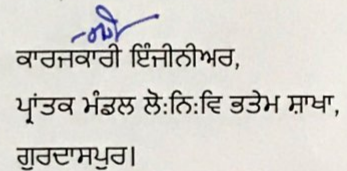 ਕਾਰਜਕਾਰੀ ਇੰਜੀਨੀਅਰ,
ਪ੍ਰਾਂਤਕ ਮੰਡਲ ਲੋ:ਨਿ:ਵਿ ਭਤੇਮ ਸ਼ਾਖਾ,
ਗੁਰਦਾਸਪੁਰ।